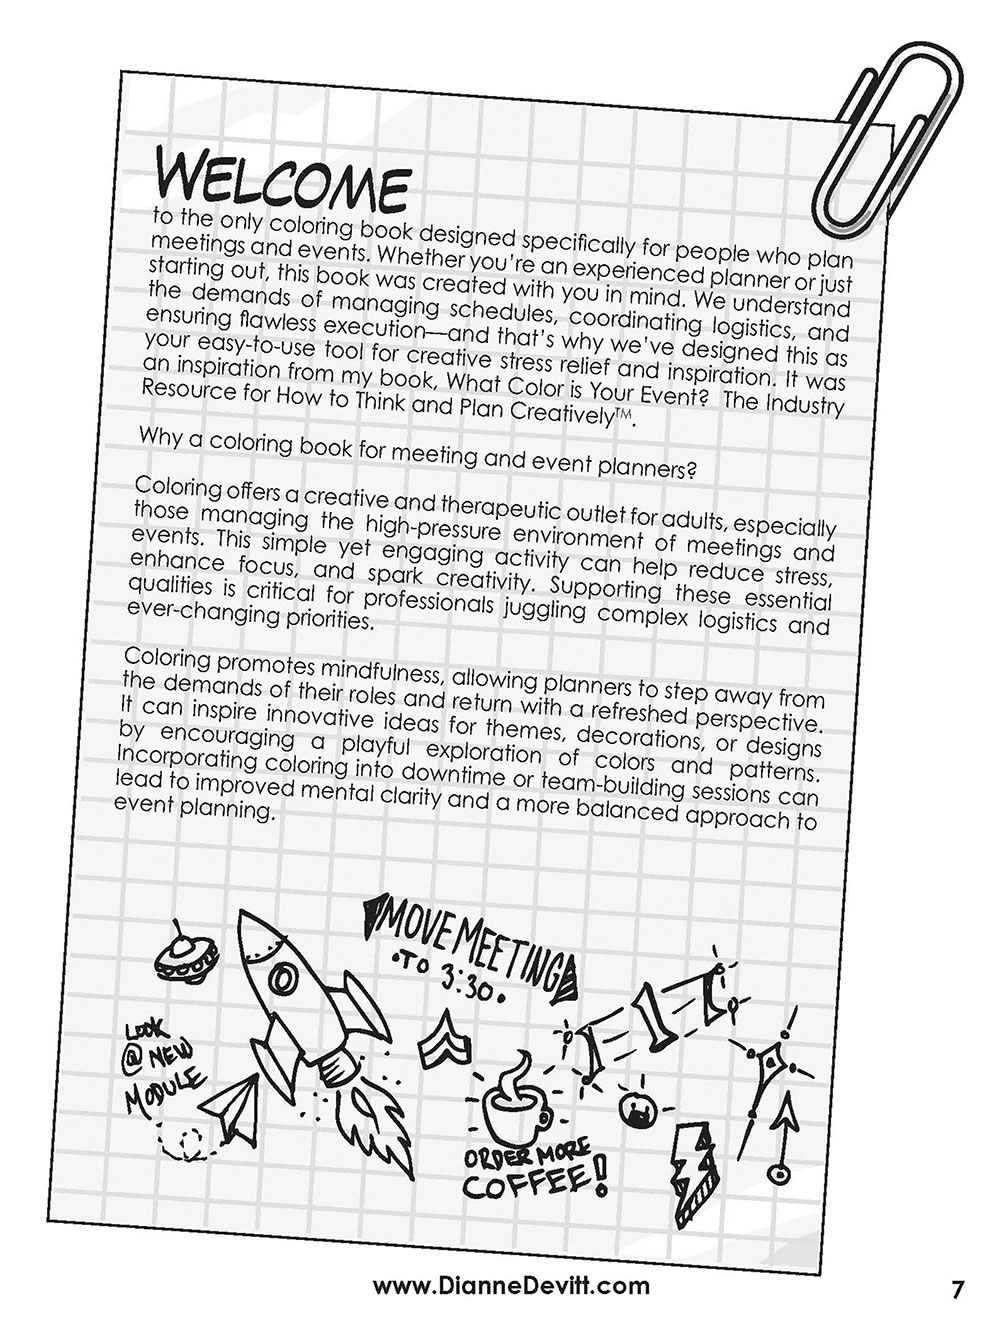 WELCOME
to the only coloring book designed specifically for people who plan
meetings and events. Whether you're an experienced planner or just
starting out, this book was created with you in mind. We understand
the demands of managing schedules, coordinating logistics, and
ensuring flawless execution—and that's why we've designed this as
your easy-to-use tool for creative stress relief and inspiration. It was
an inspiration from my book, What Color is Your Event?  The Industry
Resource for How to Think and Plan Creatively™.
Why a coloring book for meeting and event planners?
Coloring offers a creative and therapeutic outlet for adults, especially
those managing the high-pressure environment of meetings and
events. This simple yet engaging activity can help reduce stress,
enhance focus, and spark creativity. Supporting these essential
qualities is critical for professionals juggling complex logistics and
ever-changing priorities.
Coloring promotes mindfulness, allowing planners to step away from
the demands of their roles and return with a refreshed perspective.
It can inspire innovative ideas for themes, decorations, or designs
by encouraging a playful exploration of colors and patterns.
Incorporating coloring into downtime or team-building sessions can
lead to improved mental clarity and a more balanced approach to
event planning.
MOVE MEETING
•TO 3:30•
LOOK
@ NEW
MODULE
ORDER MORE
COFFEE!
www.DianneDevitt.com
7